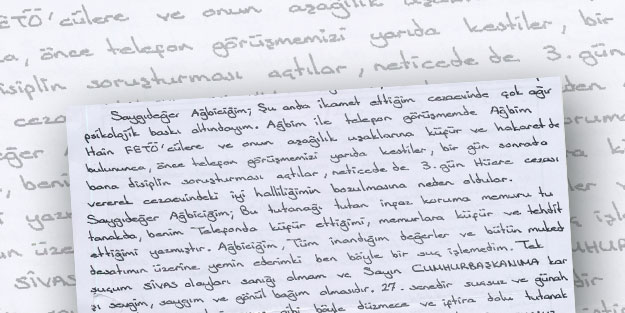 Saygıdeğer Ağbiciğim; Şu anda ikamet ettiğim cezaevinde çok ağır
psikolojik baskı altındayım. Ağbim ile telefon görüşmemde Ağbim
Hain FETÖ'cülere ve onun aşağılık uşaklarına küfür ve hakaret de
bulununca, önce telefon görüşmemizi yarıda kestiler, bir gün sonrada
bana disiplin soruşturması açtılar, neticede de 3. gün Hücre cezası
vererek cezaevindeki iyi halliliğimin bozulmasına neden oldular.
Saygıdeğer Ağbiciğim; Bu tutanağı tutan infaz koruma memuru tu
tanakda, benim Telefonda küfür ettiğimi, memurlara küfür ve tehdit
ettiğimi yazmıştır. Ağbiciğim, Tüm inandığım değerler ve bütün mukad
desatımın üzerine yemin ederimki ben böyle bir suç işlemedim. Tek
suçum SİVAS olayları sanığı olmam ve Sayın CUMHURBAŞKANIMA kar
şı sevgim, saygım ve gönül bağım olmasıdır. 27. senedir suçsuz ve günah
gibi böyle düzmece ve iftira dolu tutanak